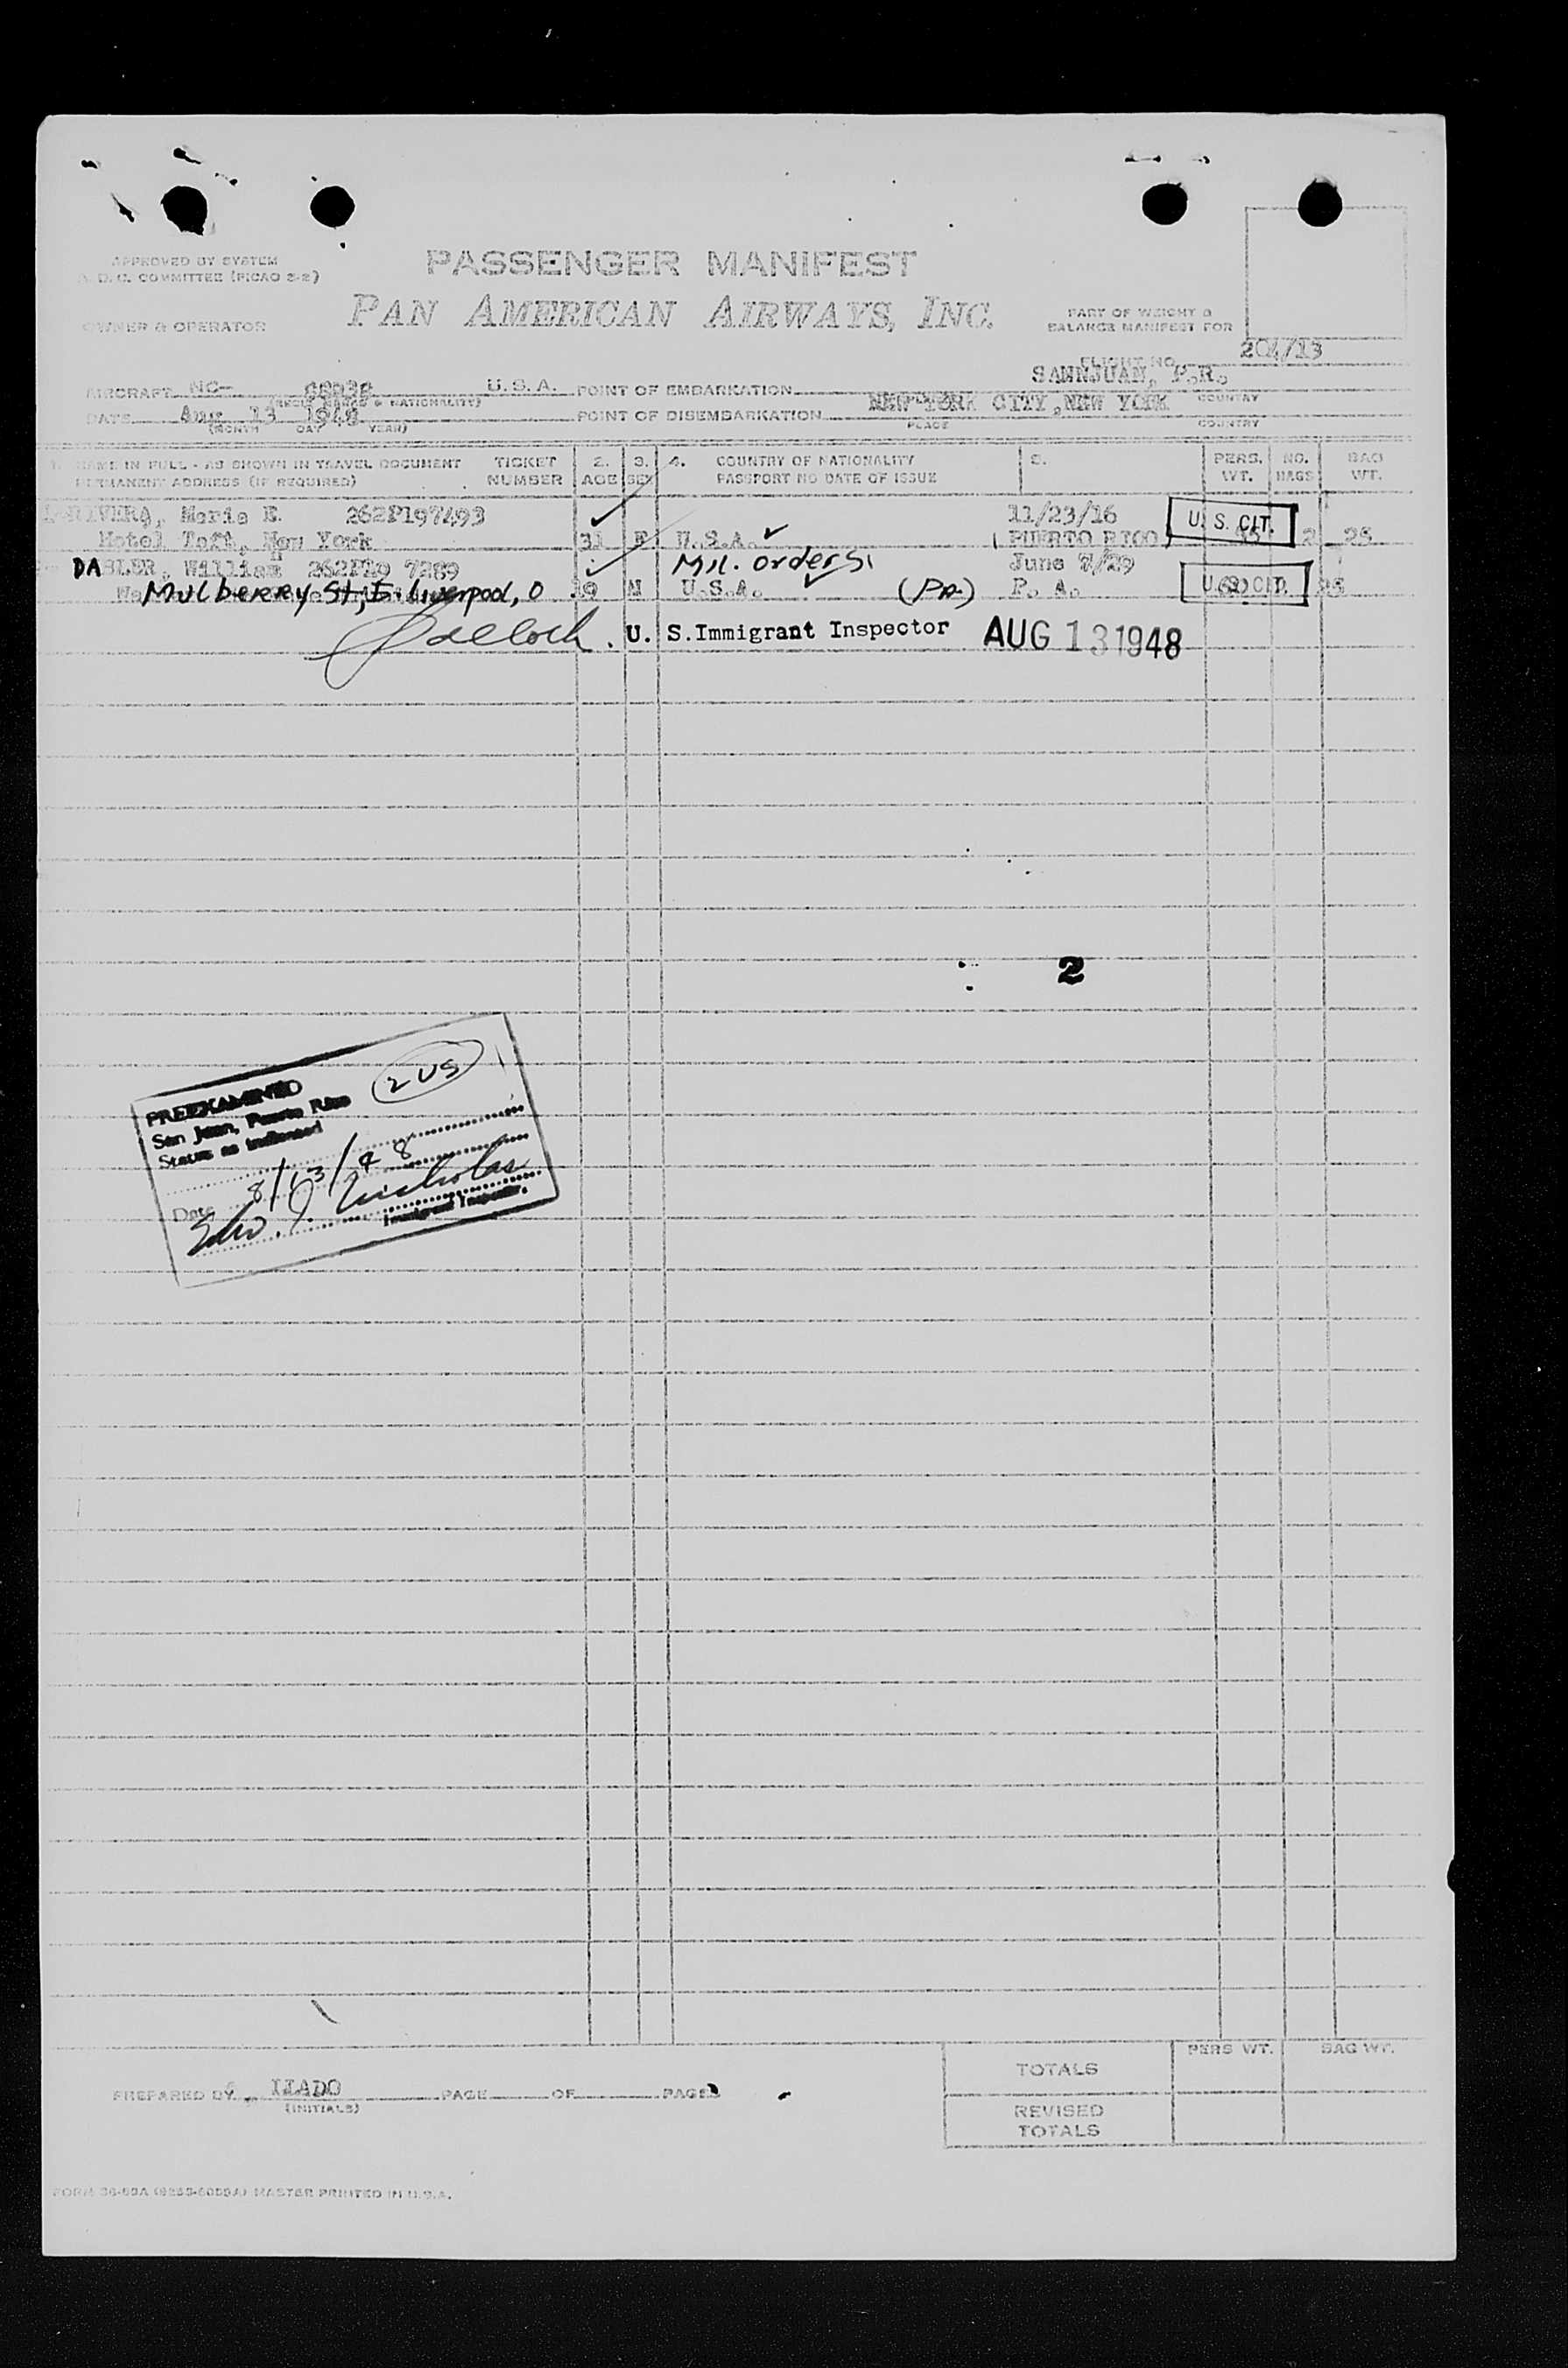 APPROVED BY SYSTEM
COMMITTEE (PICAO 2-2)
PASSENGER MANIFEST
OWNER & OPERATOR
PAN AMERICAN AIRWAYS, INC.
PART OF WEIGHT &
BALANCE MANIFEST FOR
FLIGHT NO. 204/13
AIRCRAFT NC- U.S.A. POINT OF EMBARKATION SANNJUAN, P.R.
PLACE COUNTRY
DATE Aug 13 1948 POINT OF DISEMBARKATION NEW YORK CITY, NEW YORK
(MONTH DAY YEAR) PLACE COUNTRY
NAME IN FULL - AS SHOWN IN TRAVEL DOCUMENT TICKET 2. 3. 4. COUNTRY OF NATIONALITY 5. PERS. NO. BAG
PERMANENT ADDRESS (IF REQUIRED) NUMBER AGE SEX PASSPORT NO DATE OF ISSUE WT. BAGS WT.
RIVERA, Maria E. 262P197493 11/23/16 U. S. CIT.
Hotel Taft, New York 31 F U.S.A. (PUERTO RICO) 2 25
DA LER, William 262P19 7289 Mil. orders June 7/29
Mulberry St, E. Liverpool, O 19 M U.S.A. (PA) P. A. U.S. CIT. 25
U. S. Immigrant Inspector AUG 13 1948
2
PREEXAMINED 2 US
San Juan, Puerto Rico
Status as indicated
Date 8/13/48
Edw. J. Nicholas
Immigrant Inspector.
PERS WT. BAG WT.
TOTALS
PREPARED BY (INITIALS) PAGE OF PAGES
REVISED
TOTALS
MASTER PRINTED IN U.S.A.